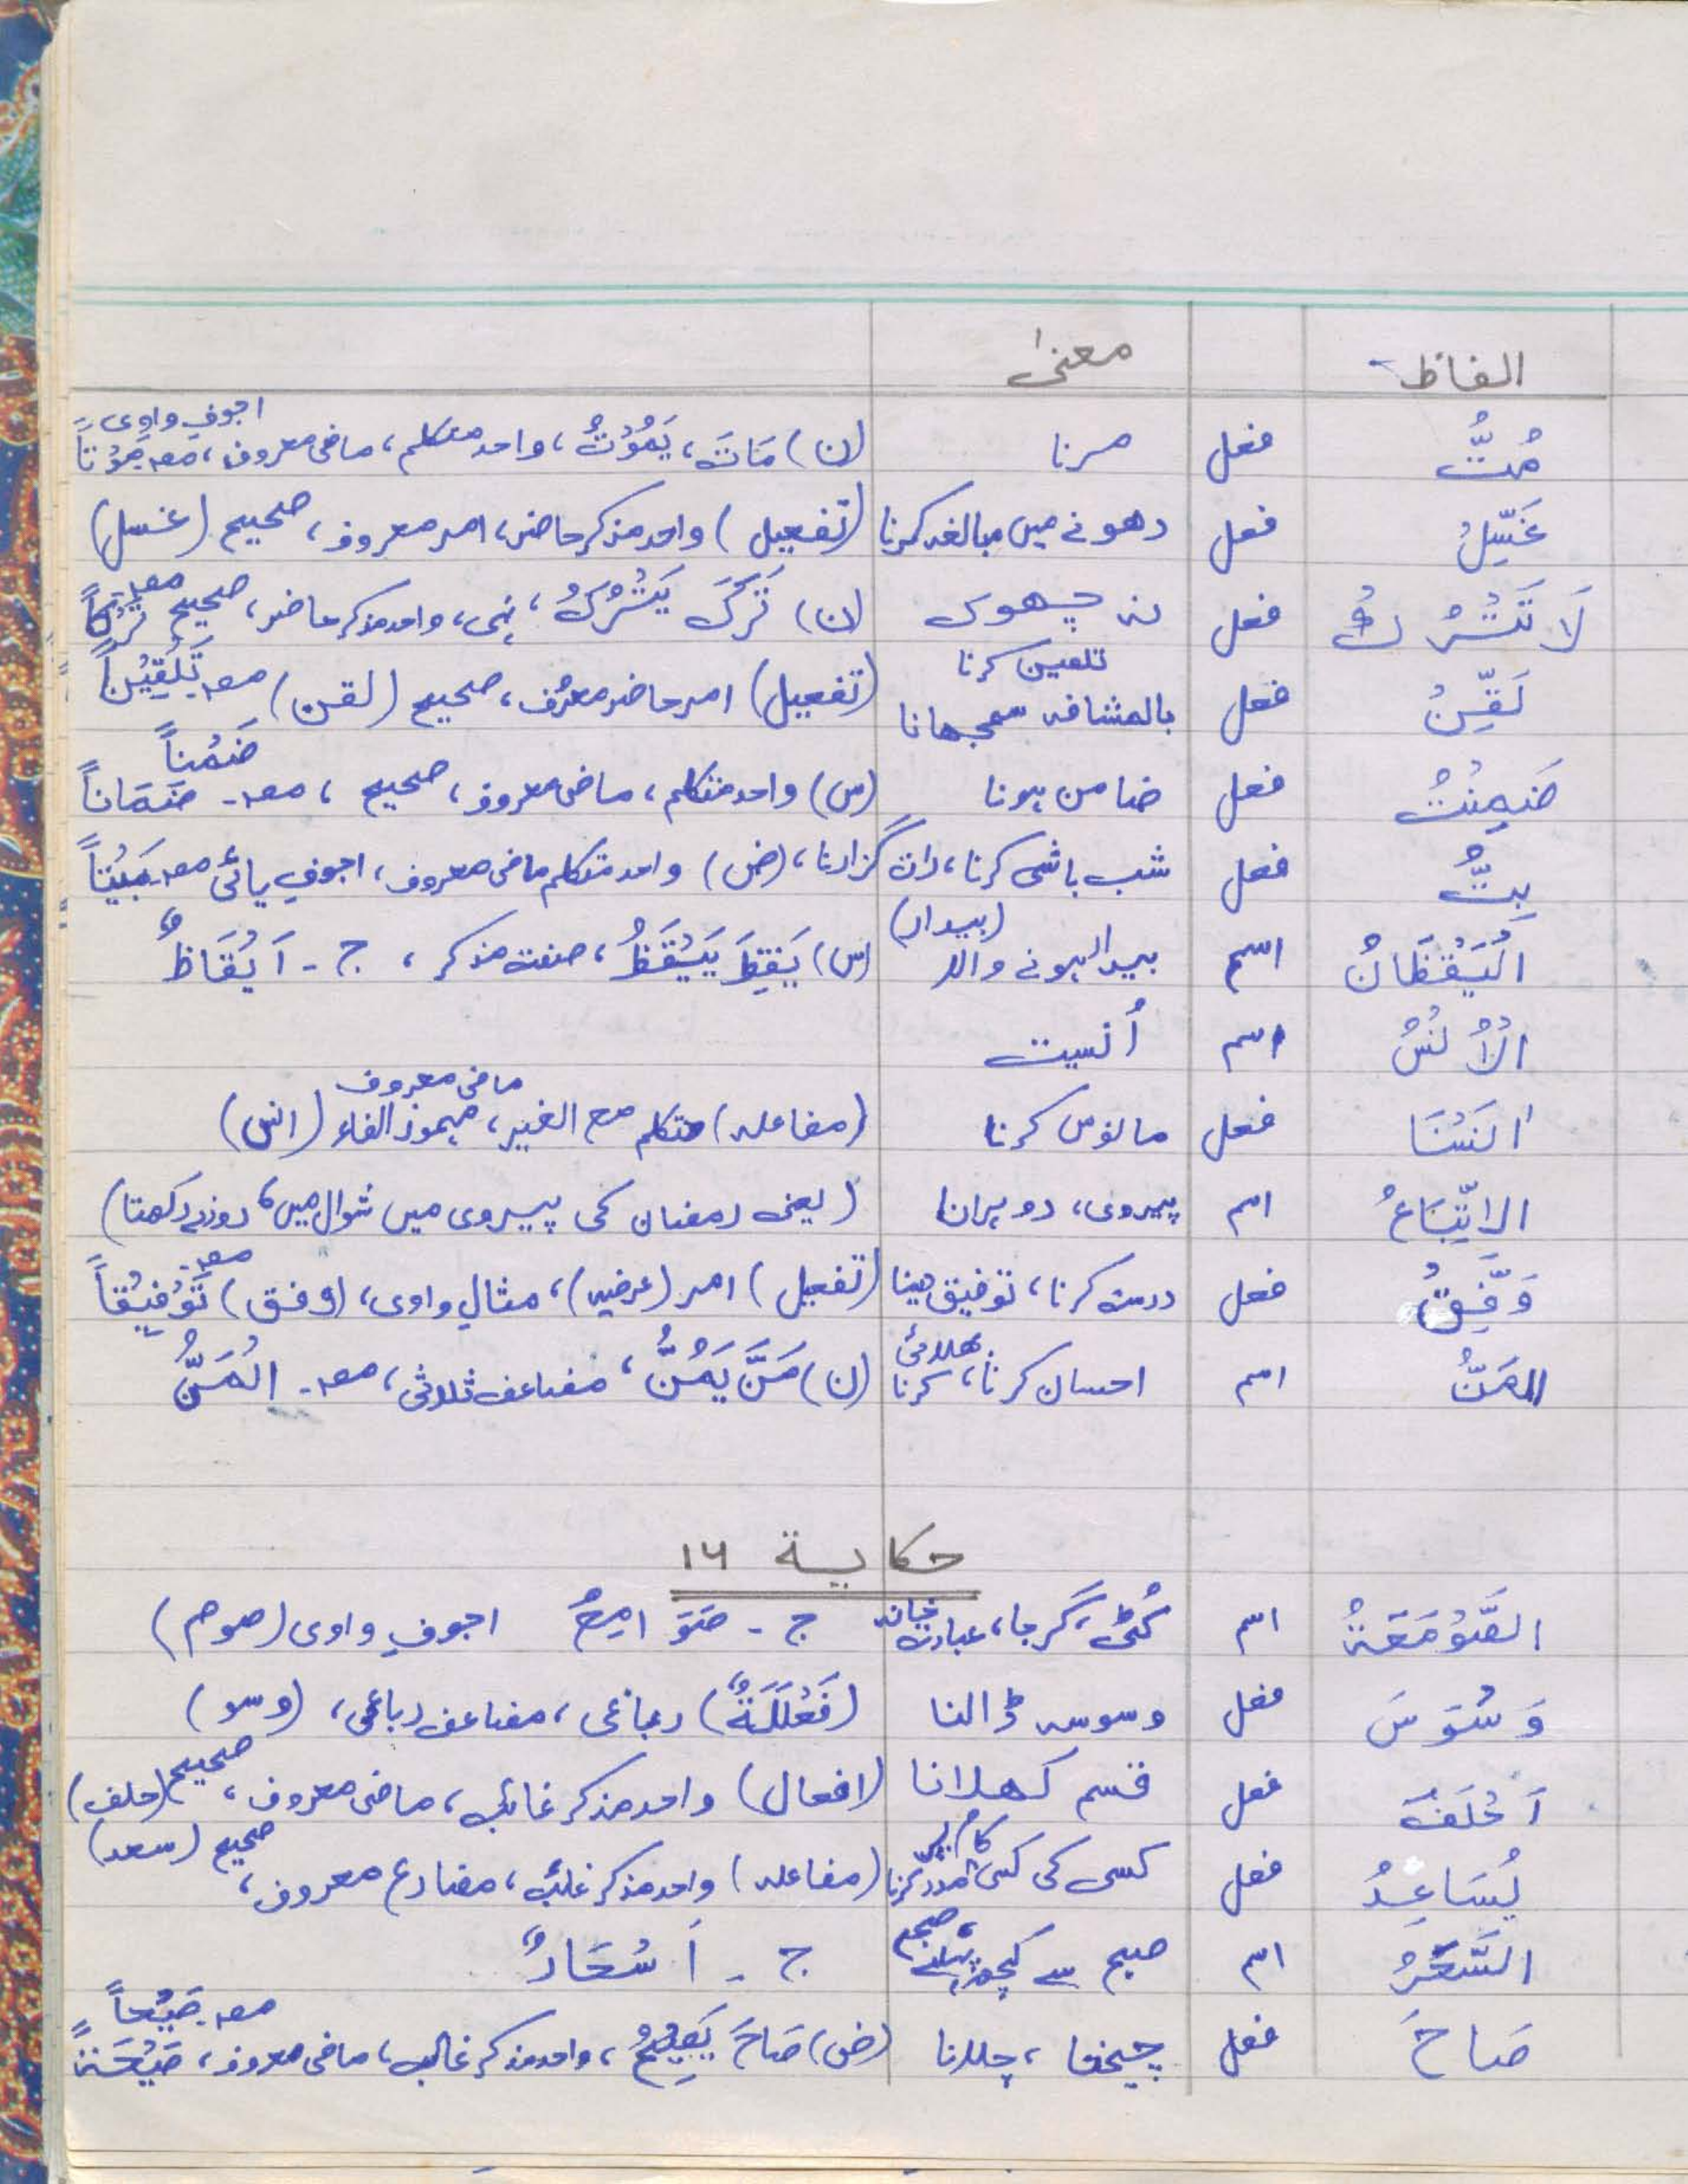 الفاظ معنیٰ
مُتُّ فعل مرنا (ن) مَاتَ، يَمُوْتُ، واحد متکلم، ماضی معروف، اجوفِ واوی مصـ مَوْتاً
غَسِّلْ فعل دھونے میں مبالغہ کرنا (تفعیل) واحد مذکر حاضر، امر معروف، صحیح (غسل)
لَا تَتْرُكْ فعل نہ چھوڑ (ن) تَرَكَ يَتْرُكُ، نہی، واحد مذکر حاضر، صحیح مصـ تَرْكاً
لَقِّنْ فعل تلقین کرنا بالمشافہ سمجھانا (تفعیل) امر حاضر معروف، صحیح (لقن) مصـ تَلْقِيْناً
ضَمِنْتُ فعل ضامن ہونا (س) واحد متکلم، ماضی معروف، صحیح، مصـ ضَمَاناً ضَمْناً
بِتُّ فعل شب باشی کرنا، رات گزارنا، (ض) واحد متکلم ماضی معروف، اجوفِ یائی مصـ بَيْتاً
اَلْيَقْظَانُ اسم بیدار ہونے والا (بیدار) (س) يَقِظَ يَيْقَظُ، صفت مذکر، ج - اَيْقَاظٌ
اَلْاُنْسُ اسم اُنسیت
اٰنَسْنَا فعل مانوس کرنا (مفاعلہ) متکلم مع الغیر، ماضی معروف مہموز الفاء (انس)
الاِتِّبَاعُ اسم پیروی، دوہرانا (یعنی رمضان کی پیروی میں شوال میں ۶ روزے رکھنا)
وَفِّقْ فعل درست کرنا، توفیق دینا (تفعیل) امر (عرضیہ)، مثالِ واوی، (وفق) مصـ تَوْفِيْقاً
المَنُّ اسم احسان کرنا، بھلائی کرنا (ن) مَنَّ يَمُنُّ، مضاعف ثلاثی، مصـ اَلْمَنُّ
حكاية ١٦
الصَّوْمَعَةُ اسم کُٹی، گرجا، عبادت خانہ ج - صَوَامِعُ اجوفِ واوی (صوم)
وَسْوَسَ فعل وسوسہ ڈالنا (فَعْلَلَةٌ) رباعی، مضاعف رباعی، (وسو)
اَحْلَفَ فعل قسم کھلانا (افعال) واحد مذکر غائب، ماضی معروف، صحیح (حلف)
يُسَاعِدُ فعل کسی کی کسی کام پر مدد کرنا (مفاعلہ) واحد مذکر غائب، مضارع معروف، صحیح (سعد)
السَّحَرُ اسم صبح سے کچھ پہلے، صبح ج - اَسْحَارٌ
صَاحَ فعل چیخنا، چلانا (ض) صَاحَ يَصِيْحُ، واحد مذکر غائب، ماضی معروف، مصـ صَيْحاً صَيْحَةً